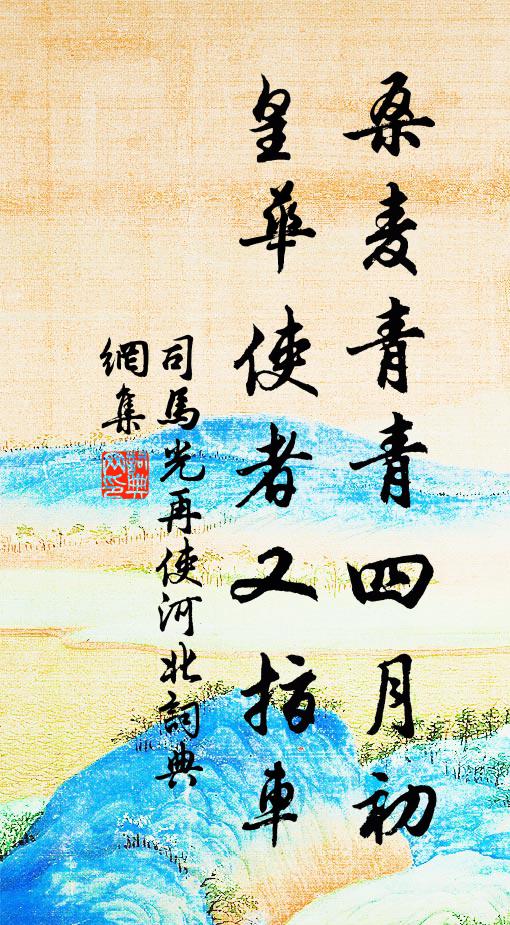 桑麦青青四月初
皇華使者又指車
司馬光再使河北詞典
網集
詞典